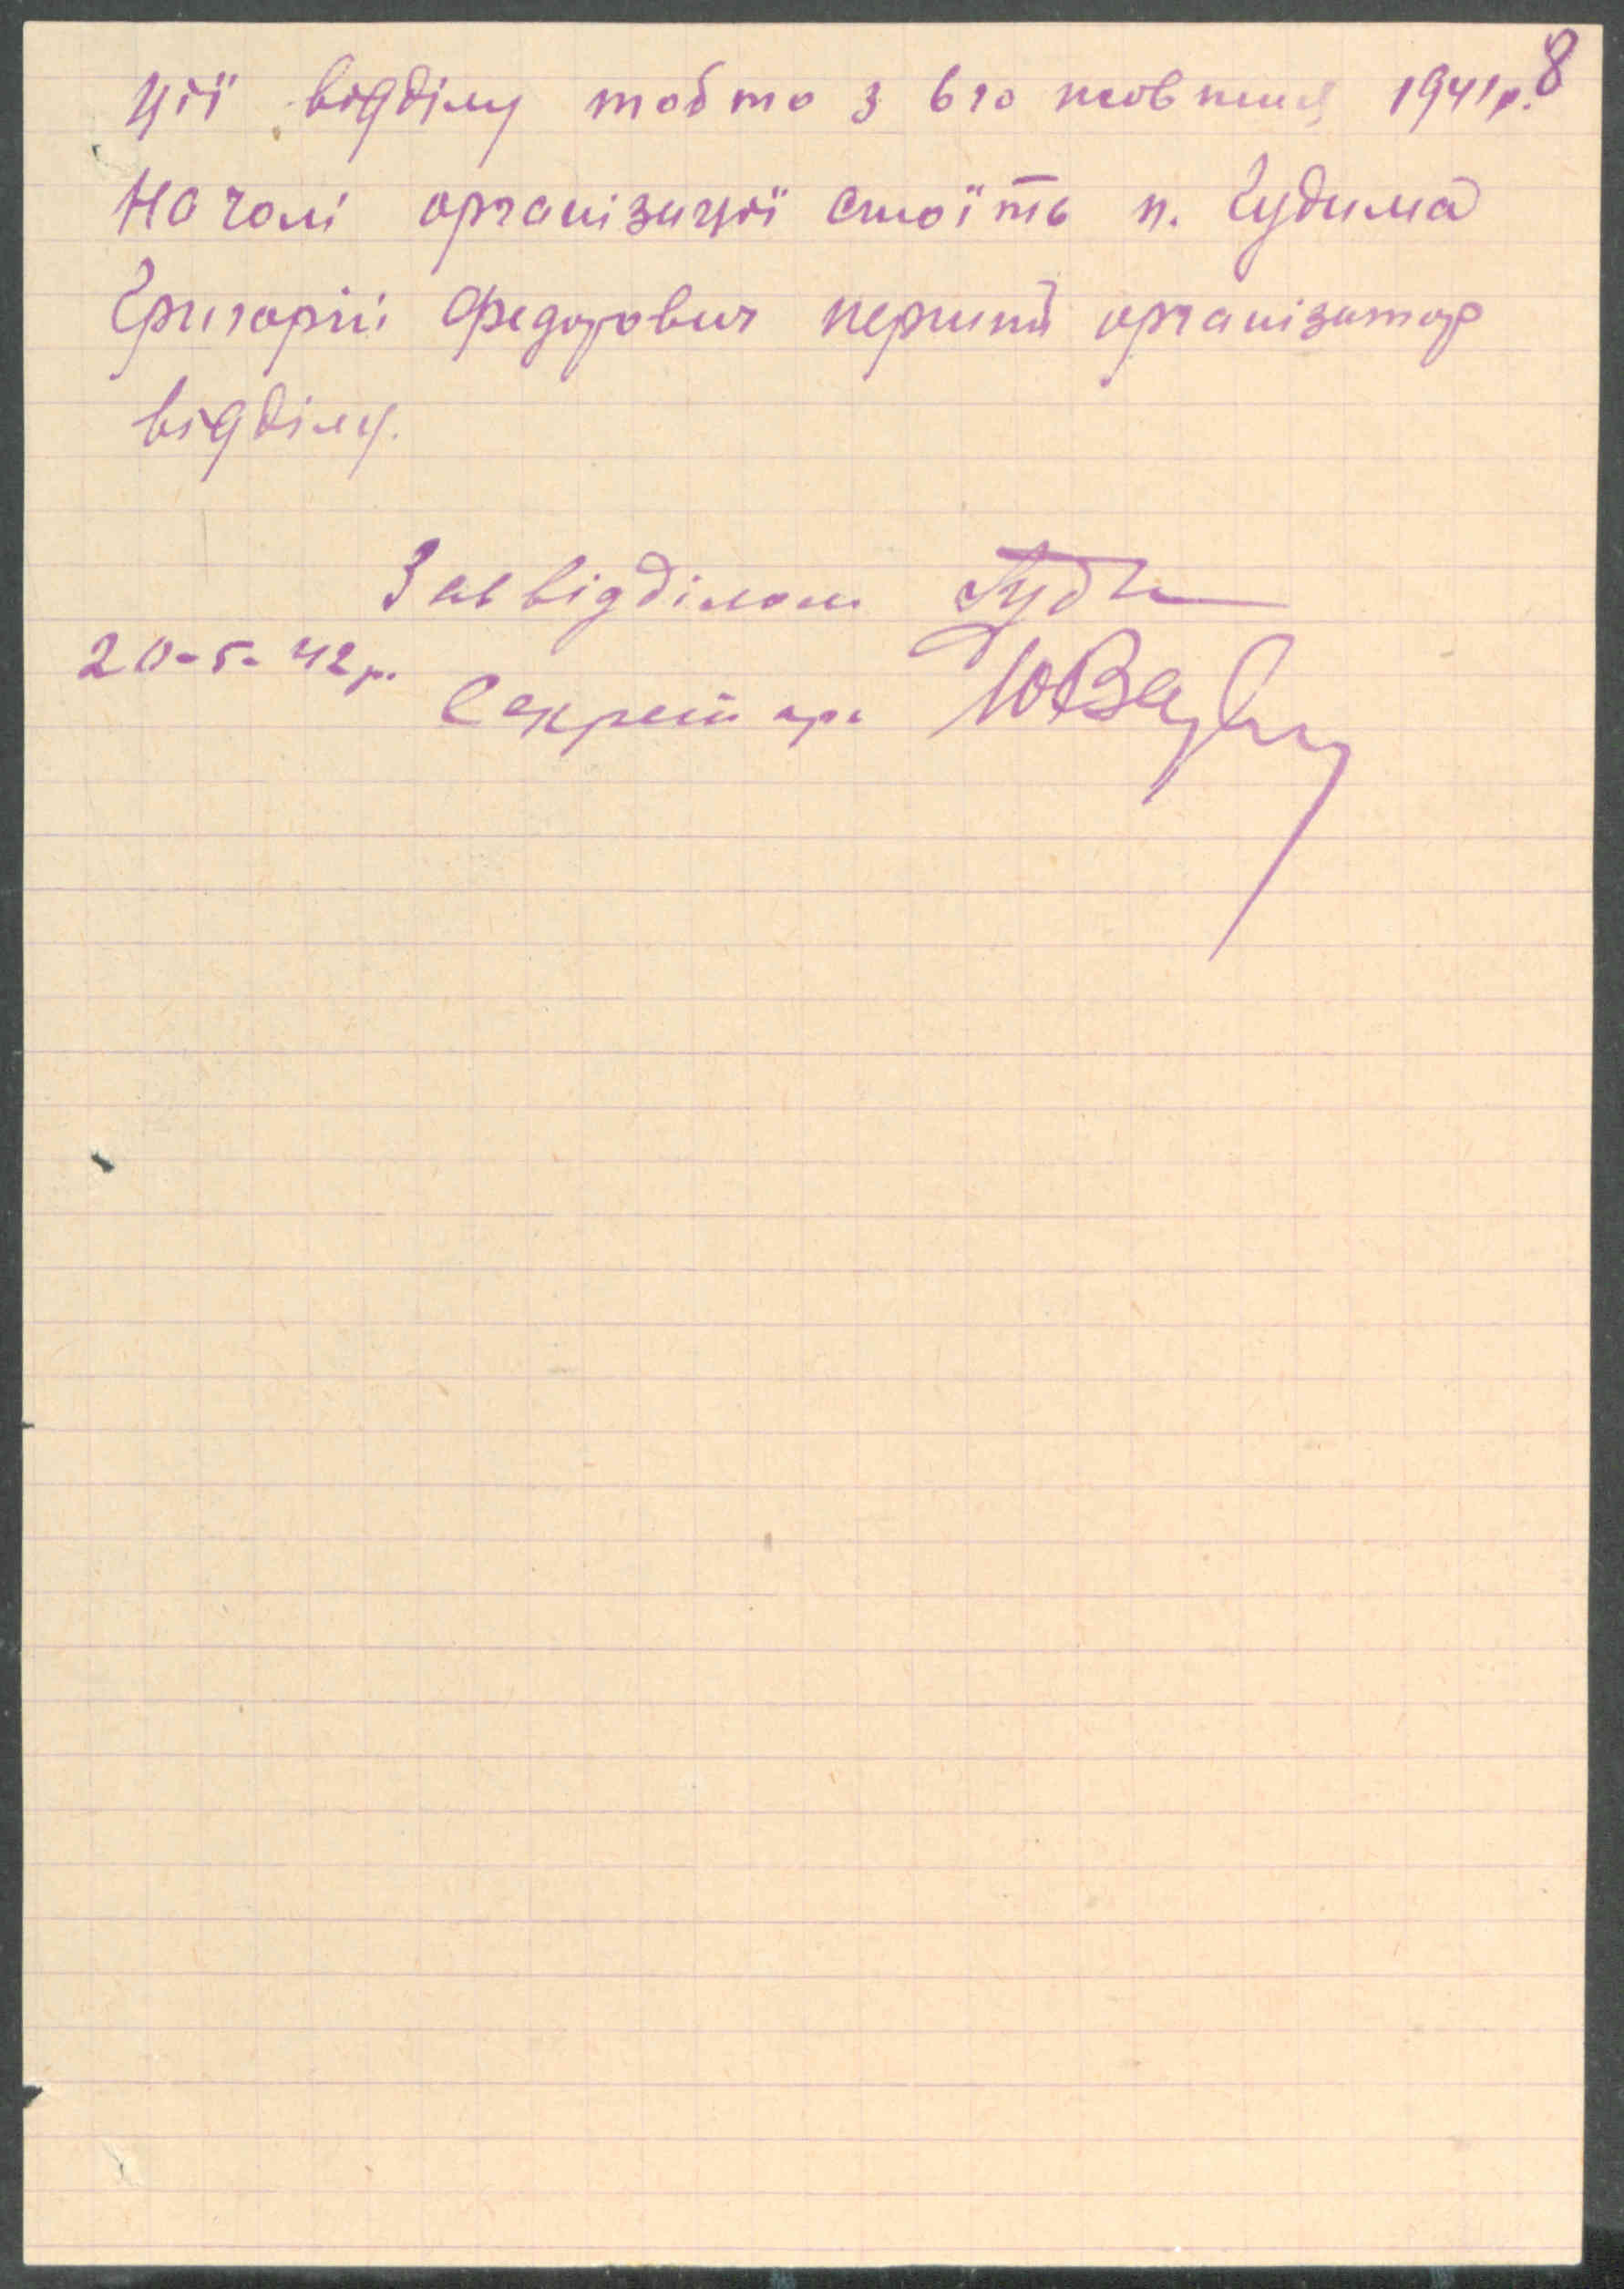 8
ції відділу тобто з 6го жовтня 1941р.
На чолі організації стоїть п. Гудима
Григорій Федорович перший організатор
відділу.
Зав відділом
20-5-42р.
Секретар